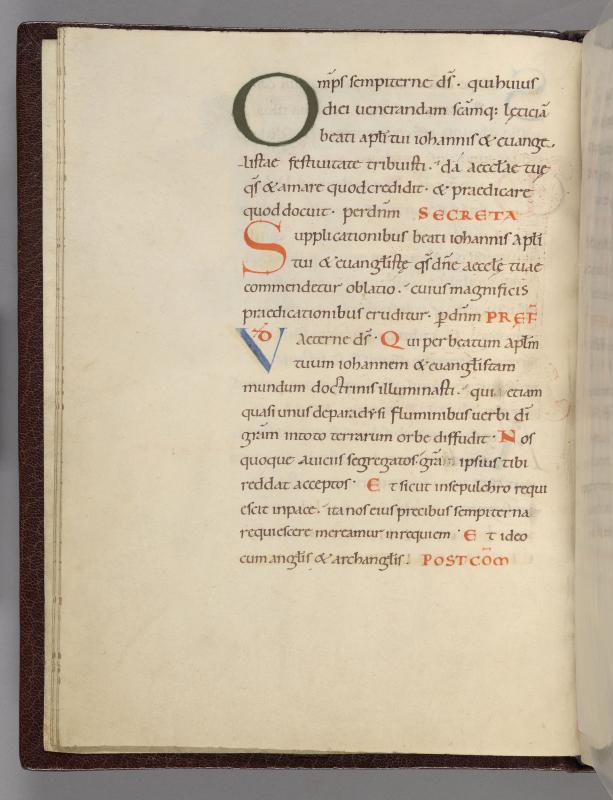 Om̅ps sempiterne d̅s̅. qui huius
diei uenerandam sc̅amq: lęticia̅
beati apl̅i tui iohannis & euange-
listae festiuitate tribuisti. da aecclae tuę
q̅s & amare quod credidit. & praedicare
quod docuit. per dn̅m SECRETA
Supplicationibus beati iohannis apl̅i
tui & euangl̅istę q̅s dn̅e aecclę tuae
commendetur oblatio. cuius magnificis
praedicationibus eruditur. p̲ dn̅m PREF̅
VD Aeterne d̅s̅. Qui per beatum apl̅m
tuum iohannem & euangl̅istam
mundum doctrinis illuminasti. qui etiam
quasi unus de paradysi fluminibus uerbi d̅i̅
gr̅am in toto terrarum orbe diffudit. Nos
quoque a uiciis segregatos. gr̅a̅ ipsius tibi
reddat acceptos. Et sicut in sepulchro requi
escit in pace. ita nos eius precibus sempiterna
requiescere mereamur in requiem. Et ideo
cum angl̅is & archangl̅is. POSTCO̅M